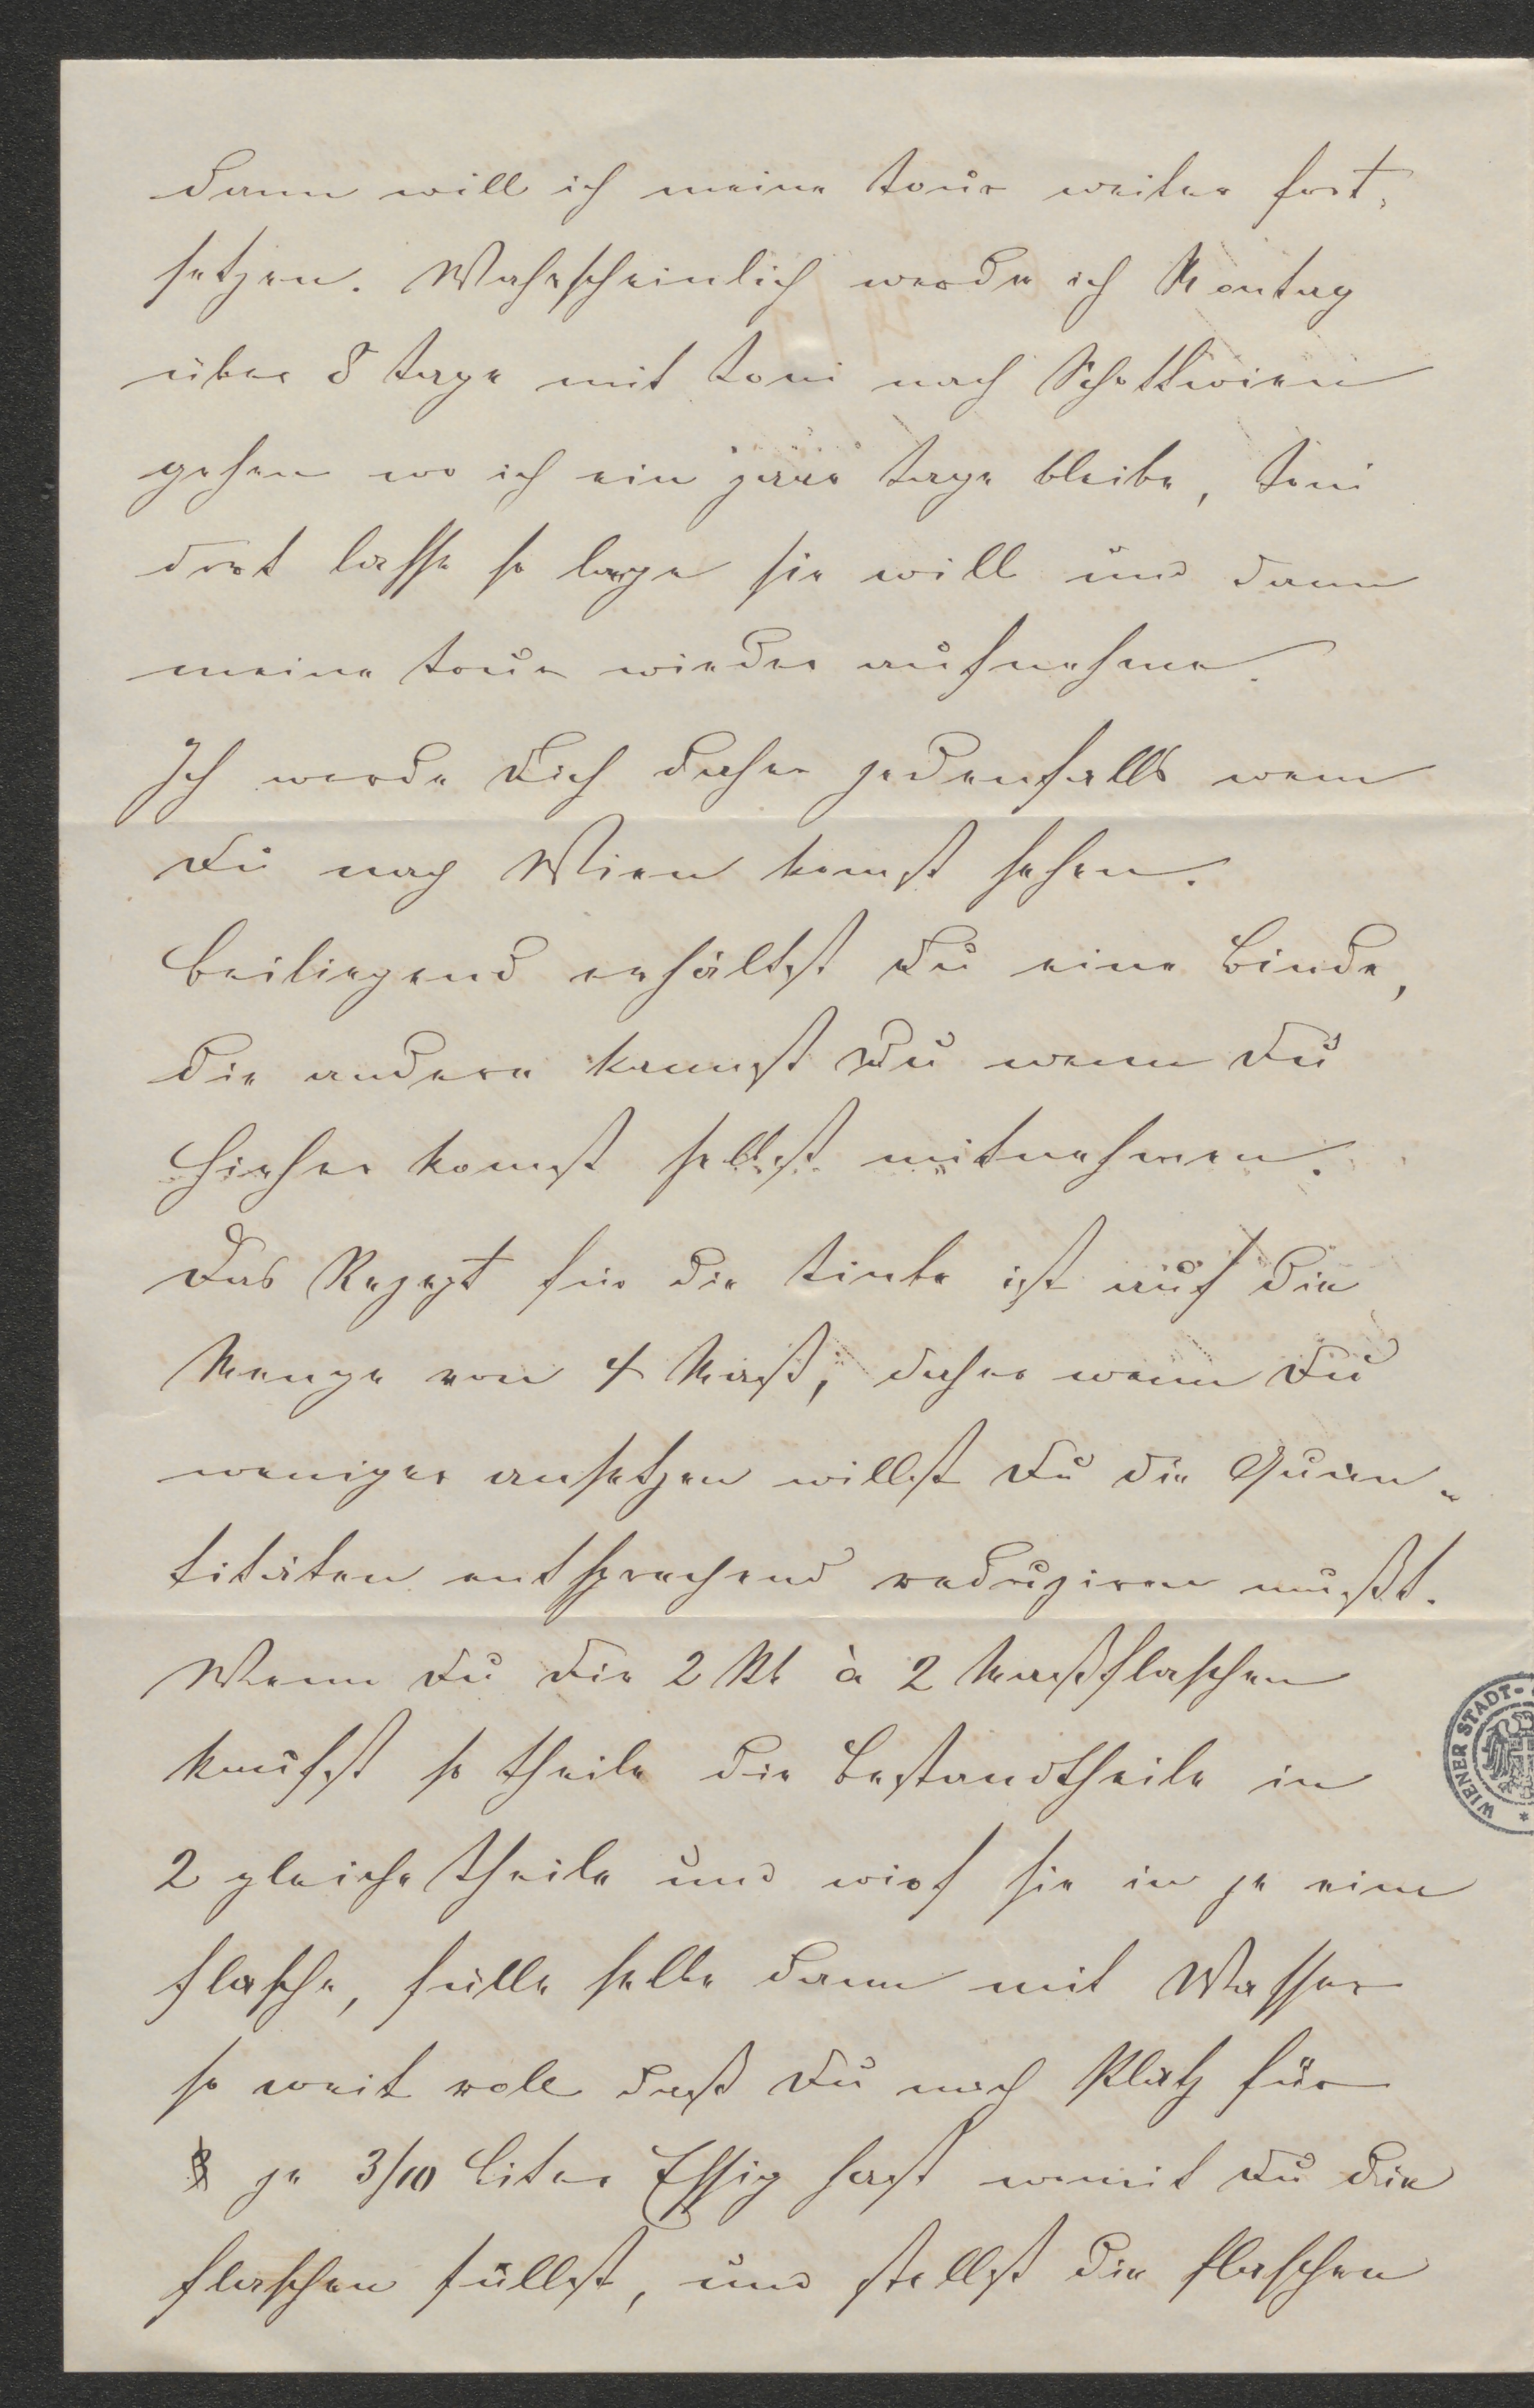 dann will ich meine Tour weiter fort-
setzen. Wahrscheinlich werde ich Montag
über 8 Tage mit Toni nach Schottwien
gehen wo ich ein paar Tage bleibe, Toni
dort lasse so lange sie will und dann
meine Tour wieder aufnehme.
Ich werde Dich daher jedenfalls wenn
Du nach Wien komst sehen.
Beiliegend erhältst Du eine Binde,
die andere kannst Du wenn Du
hieher komst selbst mitnehmen.
Das Rezept für die Tinte ist auf die
Menge von 4 Maß, daher wenn Du
weniger ansetzen willst Du die Quan-
titäten entsprechend reduziren mußt.
Wenn Du Die 2 St à 2 Maßflaschen
kaufst so theile die Bestandtheile in
2 gleiche Theile und wirf sie in je eine
Flasche, fülle selbe dann mit Wasser
so weit voll daß Du noch Platz für
je 3/10 Liter Essig hast womit Du die
Flaschen füllst, und stellst die Flaschen
WIENER STADT-